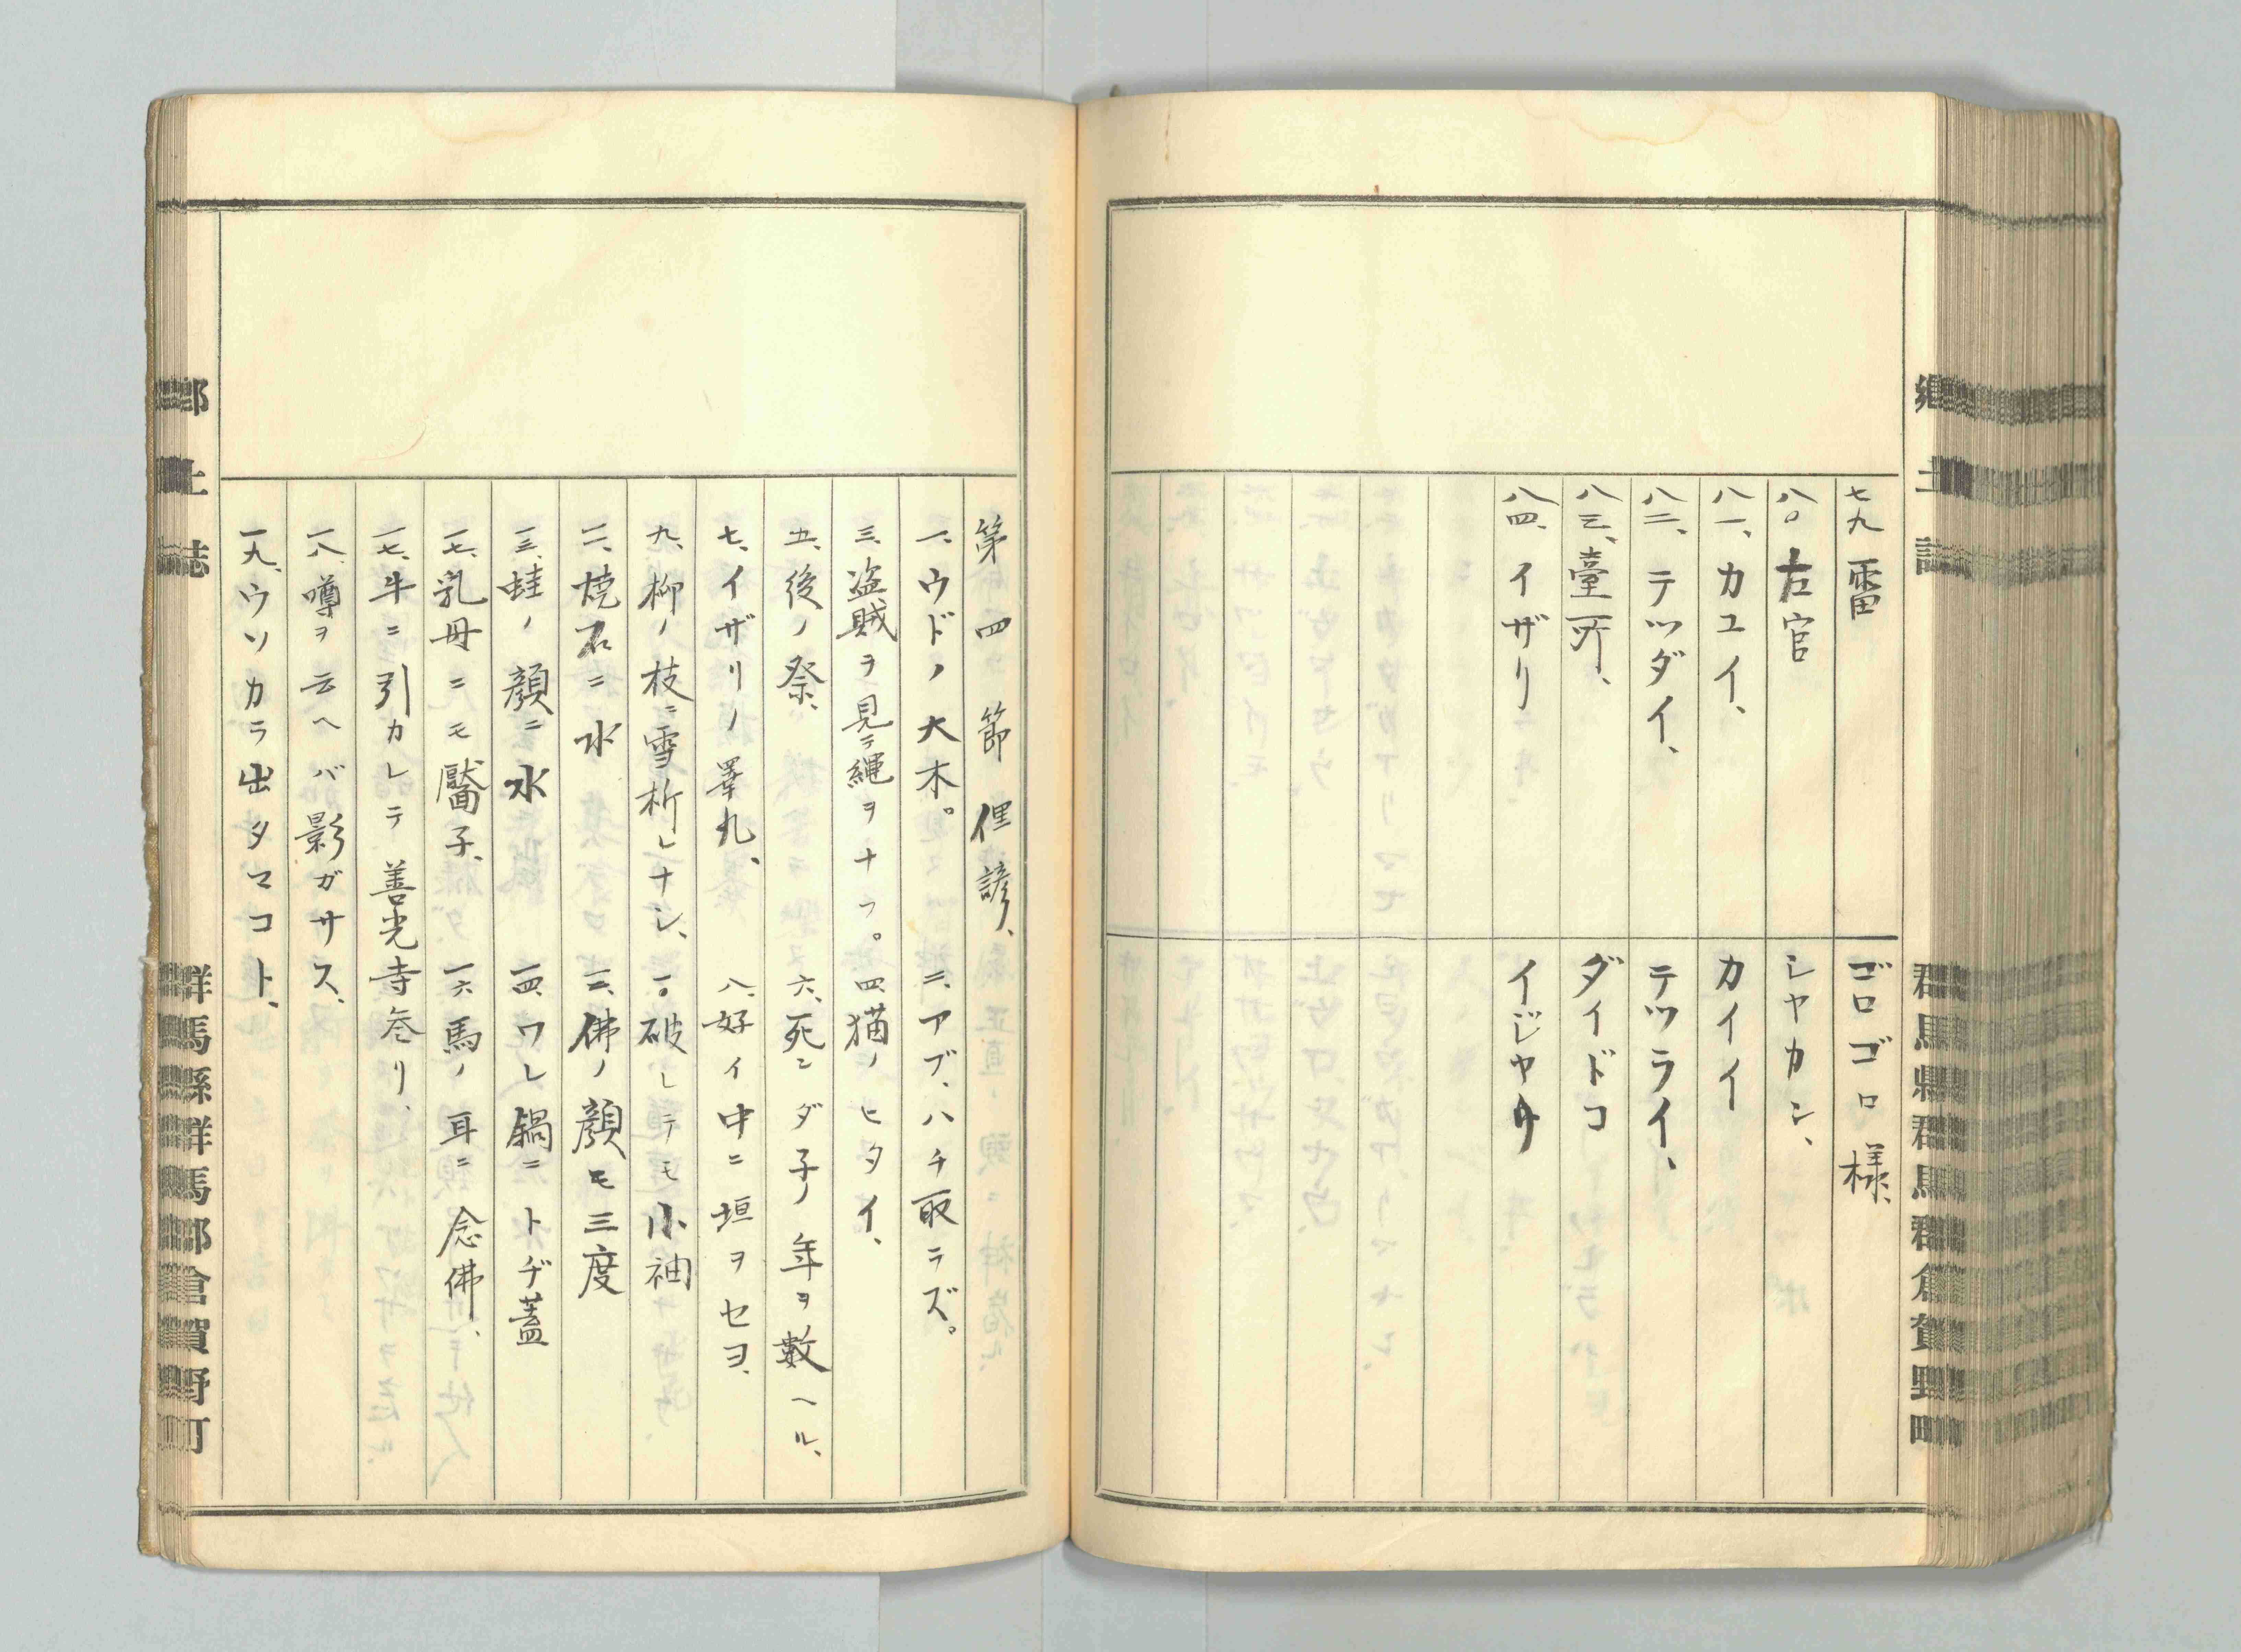 郷土誌
群馬県群馬郡倉賀野町
七九 雷 ゴロゴロ様、
八〇 左官 シヤカン、
八一、カユイ、 カイイ
八二、テツダイ、 テツライ、
八三、臺所、 ダイドコ
八四、イザリ イジヤリ
第四節 俚諺、
一、ウドノ大木。 二、アブ、ハチ取ラズ。
三、盗賊ヲ見テ縄ヲナフ。 四、猫ノヒタイ、
五、後ノ祭、 六、死ンダ子ノ年ヲ數ヘル、
七、イザリノ睾丸、 八、好イ中ニ垣ヲセヨ、
九、柳ノ枝ニ雪折レナシ、 一〇、破レテモ小袖
一一、焼石ニ水 一二、佛ノ顔モ三度
一三、蛙ノ顔ニ水 一四、ワレ鍋ニトヂ蓋
一七、乳母ニモ靨子、 一六、馬ノ耳ニ念佛、
一七、牛ニ引カレテ善光寺参リ、
一八、噂ヲ云ヘバ影ガサス、
一九、ウソカラ出タマコト、
郷土誌
群馬縣群馬郡倉賀野町